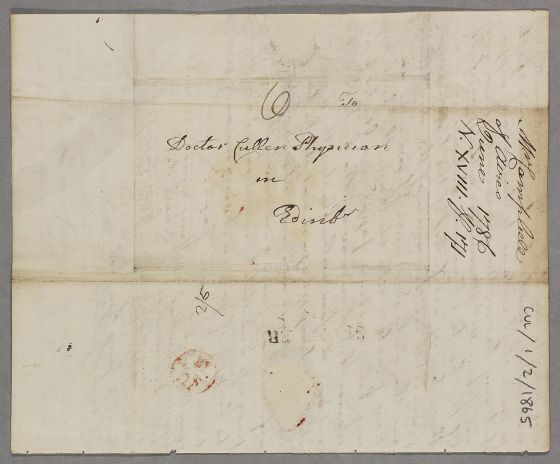 6
To
Doctor Cullen Physician
in
Edinbr
Mr Campbell
of Airies
June 1786
N. XVIII. p. 171
2/5
cul/1/2/1865